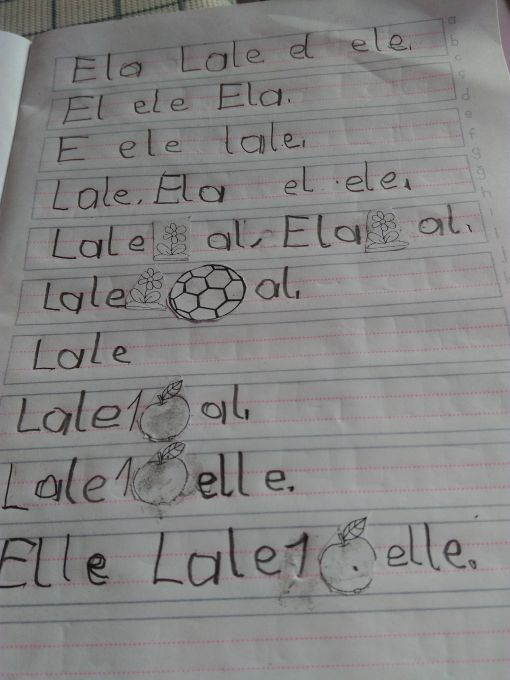 Ela Lale el ele.
El ele Ela.
E ele lale.
Lale, Ela el ele.
Lale al, Ela al.
Lale al.
Lale
Lale 1 al.
Lale 1 elle.
Elle Lale 1 elle.